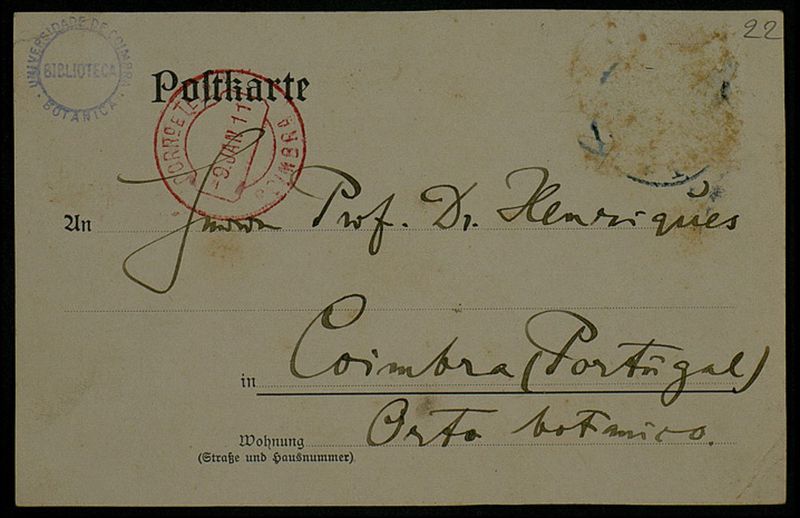 22
UNIVERSIDADE DE COIMBRA
BIBLIOTECA
BOTANICA
Postkarte
CORRº E T
-9.JAN 11
COIMBRA
An Herrn Prof. Dr. Henriques
in Coimbra (Portugal)
Wohnung Orto botanico.
(Straße und Hausnummer)